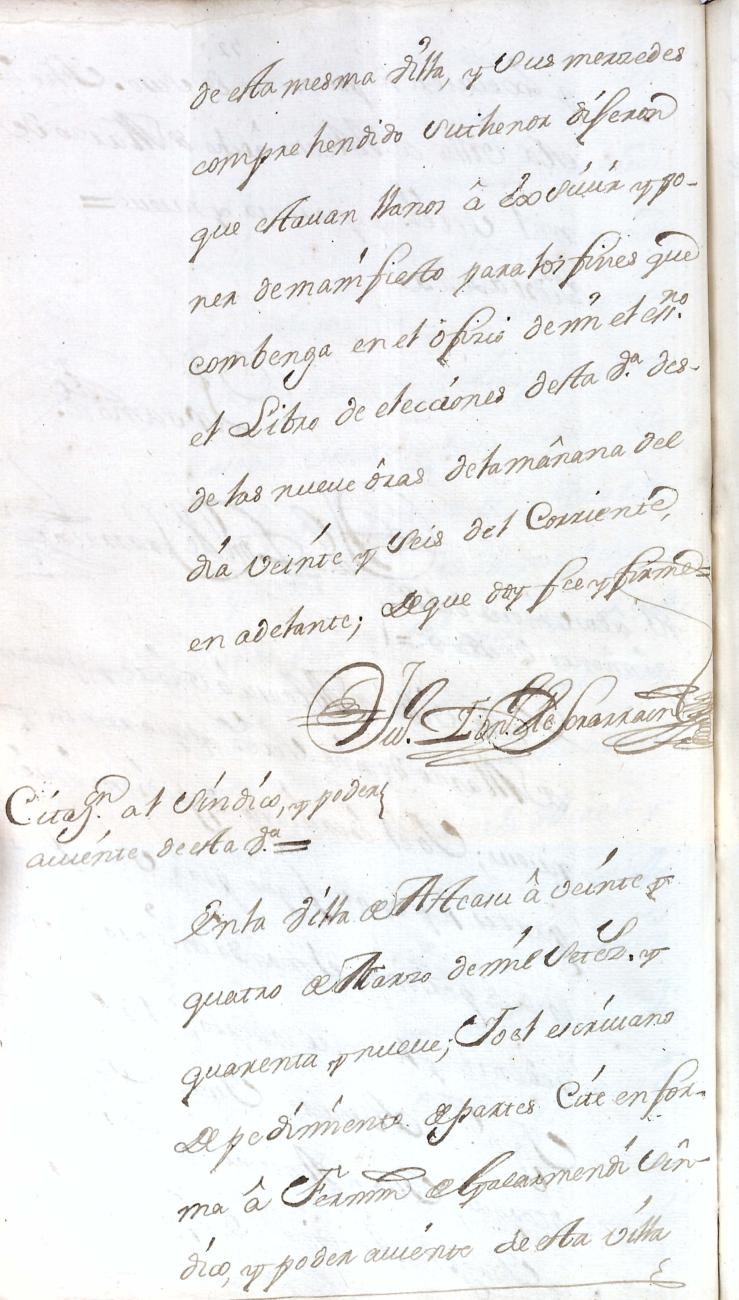 de esta mesma Villa, y Sus merzedes
comprehendido Suthenor dijeron
que estauan llanos â exSiuir y po-
ner de manifiesto para los fines que
combenga en el ofizio de mi el essno.
el Libro de elecciones desta Va. des-
de las nueue oras de la mañana del
dia veinte y Seis del Corriente,
en adelante; de que doy fee y firme=
Citazn. al Sindico, y poder
auiente de esta Va.=
En la Villa de â veinte y
quatro de Marzo de mil Setezs. y
quarenta y nueue; Yo el escriuano
de pedimiento de partes Cite en for-
ma â Fermin de Sin-
dico, y poder auiente de esta Villa